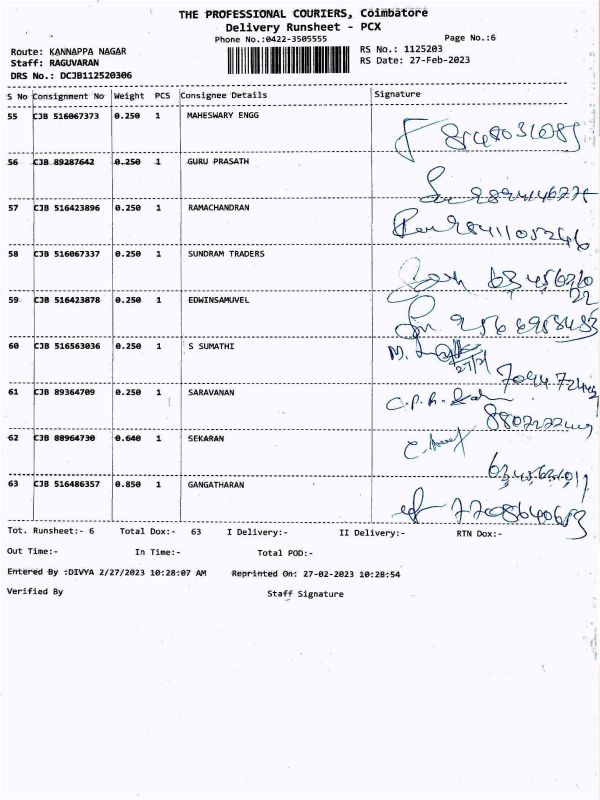 THE PROFESSIONAL COURIERS, Coimbatore
Delivery Runsheet - PCX
Phone No.:0422-3505555 Page No.:6
Route: KANNAPPA NAGAR RS No.: 1125203
Staff: RAGUVARAN RS Date: 27-Feb-2023
DRS No.: DCJB112520306
S No Consignment No Weight PCS Consignee Details Signature
55 CJB 516067373 0.250 1 MAHESWARY ENGG
56 CJB 89287642 0.250 1 GURU PRASATH
57 CJB 516423896 0.250 1 RAMACHANDRAN
58 CJB 516067337 0.250 1 SUNDRAM TRADERS
59 CJB 516423878 0.250 1 EDWINSAMUVEL
60 CJB 516563036 0.250 1 S SUMATHI M. 27/2
61 CJB 89364709 0.250 1 SARAVANAN
62 CJB 88964730 0.640 1 SEKARAN
63 CJB 516486357 0.850 1 GANGATHARAN
Tot. Runsheet:- 6 Total Dox:- 63 I Delivery:- II Delivery:- RTN Dox:-
Out Time:- In Time:- Total POD:-
Entered By :DIVYA 2/27/2023 10:28:07 AM Reprinted On: 27-02-2023 10:28:54
Verified By Staff Signature